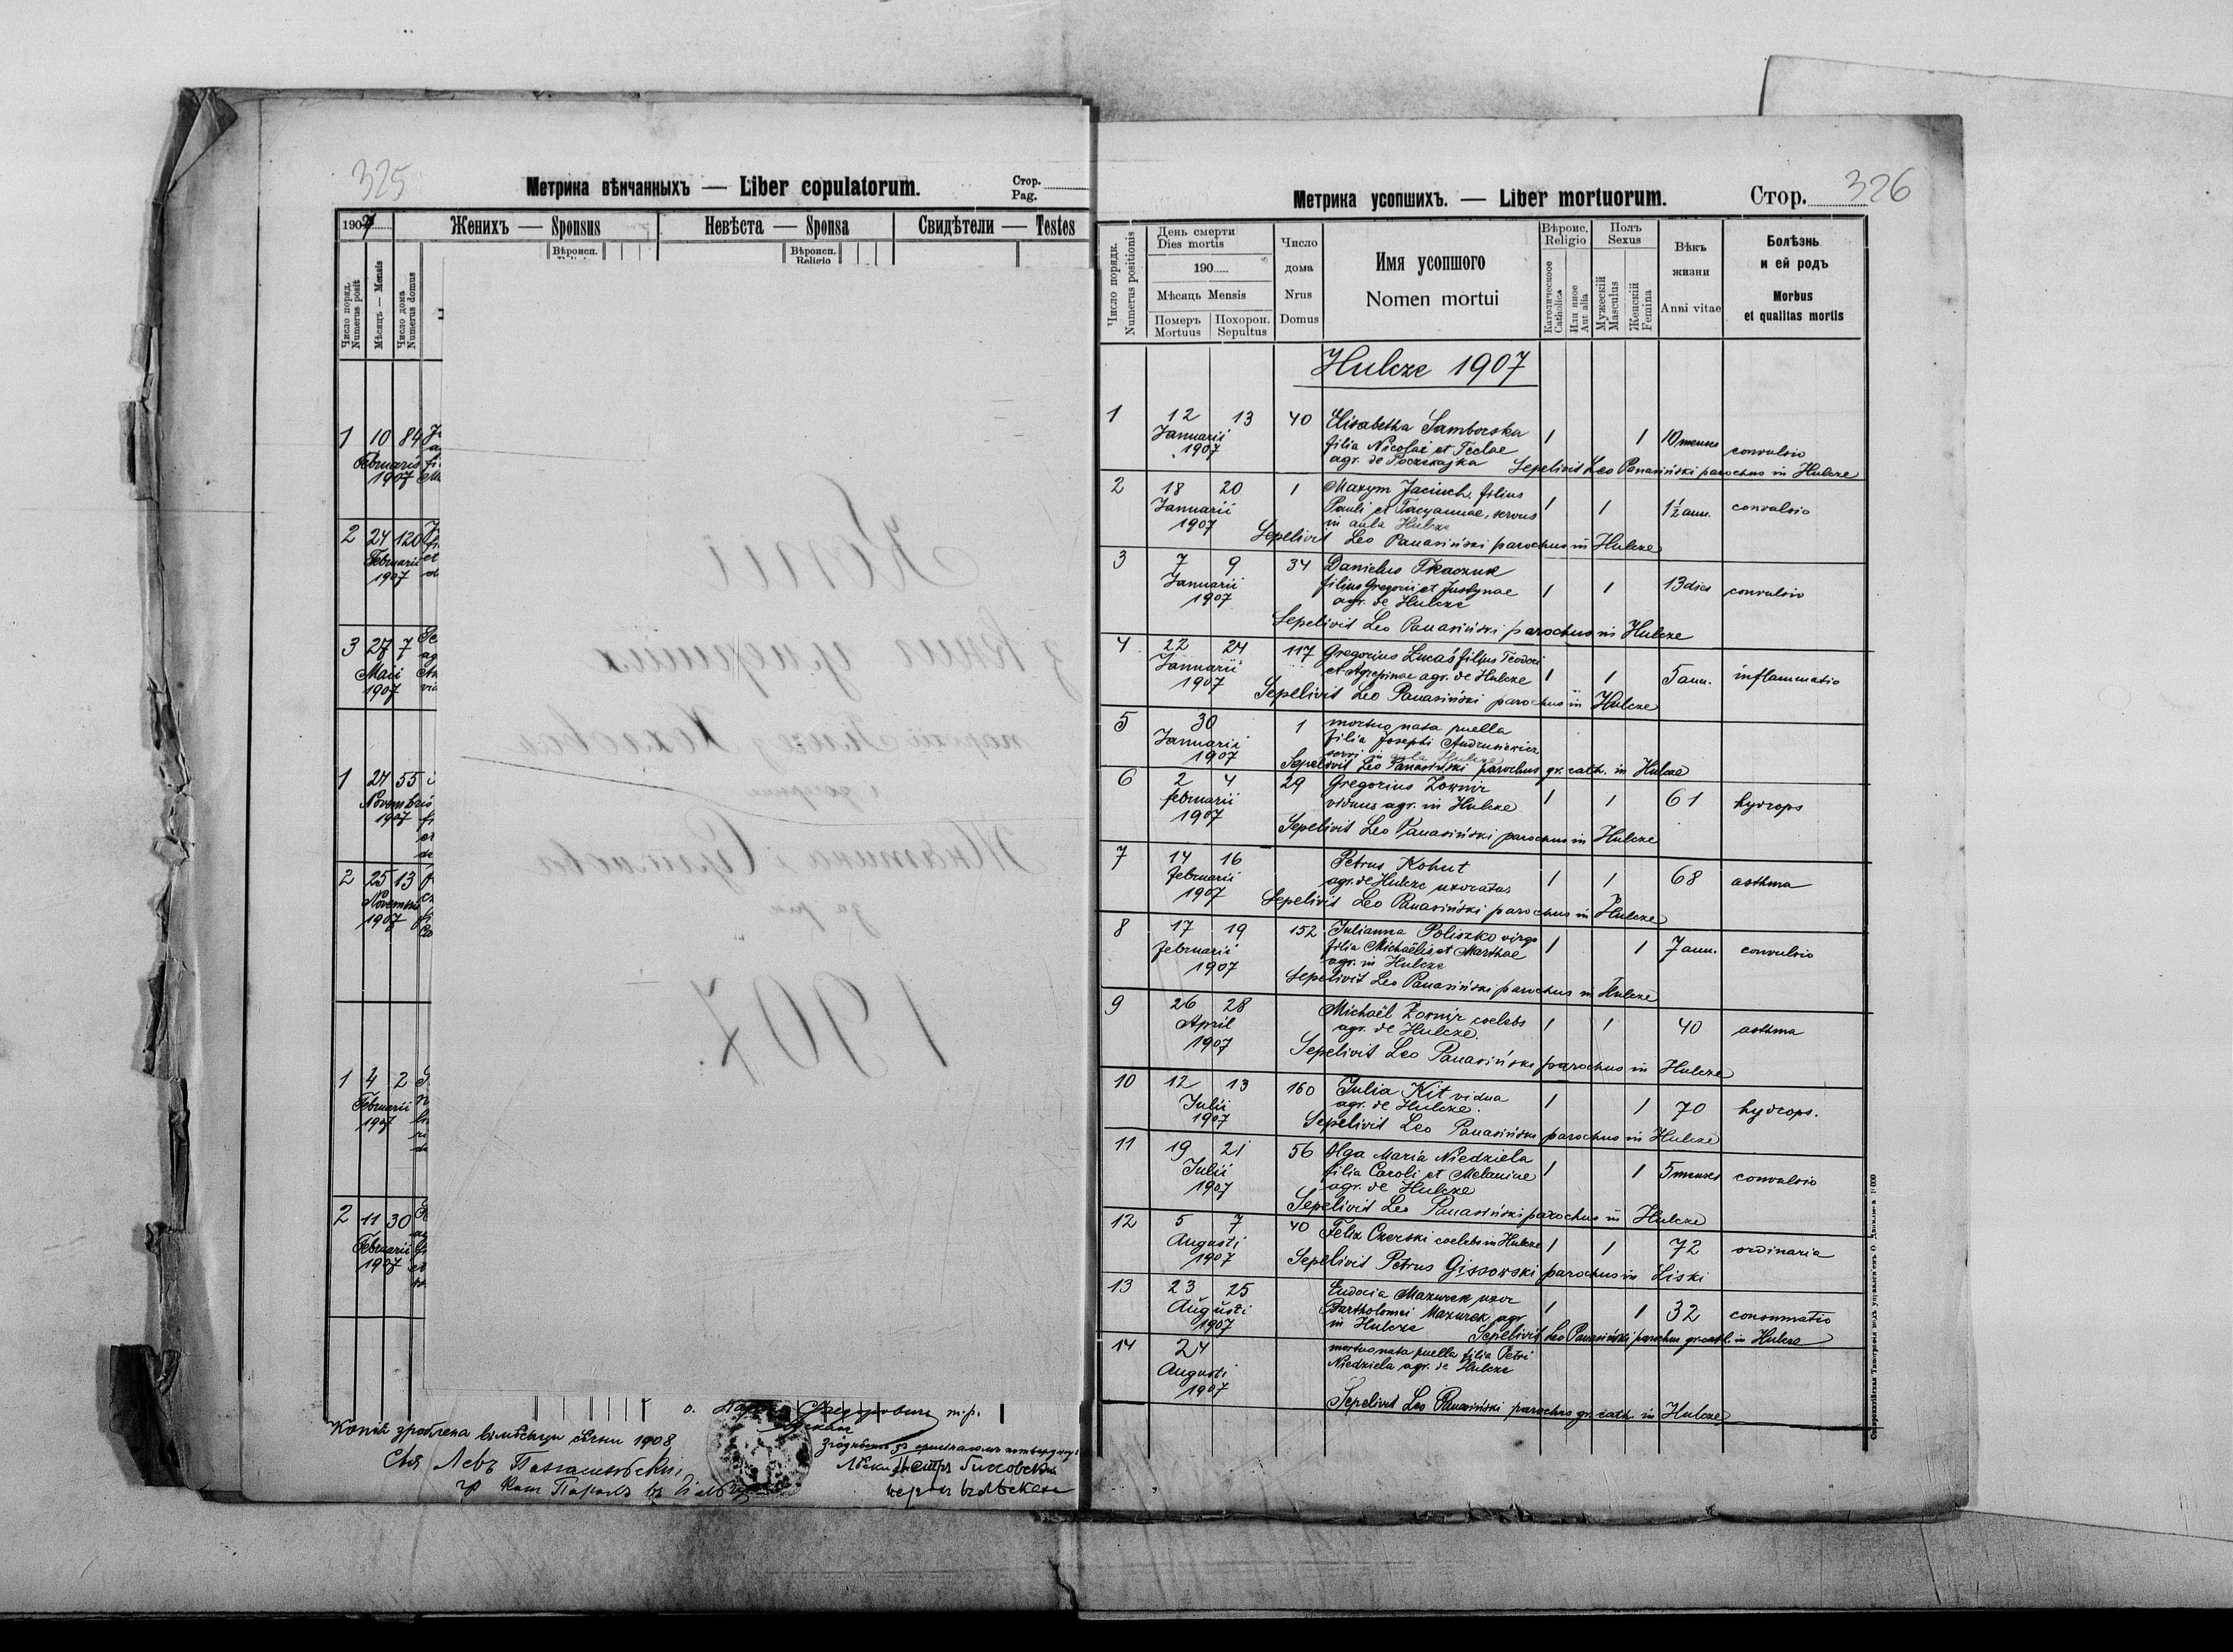 325
Метрика вѣнчанныхъ — Liber copulatorum.
Стор.
Pag.
1907
Женихъ — Sponsus
Невѣста — Sponsa
Свидѣтели — Testes
Число поряд.
Numerus posit
Мѣсяцъ — Mensis
Число дома
Numerus domus
Вѣроисп.
Вѣроисп.
Religio
1 10 84
Februarii
1907
2 24 120
Februarii
1907
3 27 7
Maii
1907
1 24 55
Novembris
1907
2 25 13
Novembris
1907
1 4 2
Februarii
1907
2 11 30
Februarii
1907
Копії
з книг умерших
парохії
за рік
1907.
1908
Левъ
326
Метрика усопшихъ. — Liber mortuorum.
Стор.
Число порядк.
Numerus positionis
День смерти
Dies mortis
190
Мѣсяць Mensis
Померъ
Mortuus
Похорон.
Sepultus
Число
дома
Nrus
Domus
Имя усопшого
Nomen mortui
Вѣроис.
Religio
Католическоое
Catholica
Или иное
Aut alia
Полъ
Sexus
Мужескій
Masculus
Женскій
Femina
Вѣкъ
жизни
Anni vitae
Болѣзнь
и ей родъ
Morbus
et qualitas mortis
Hulcze 1907
1 12 13 40 Elisabetha Samborska 1 1 10 menses convulsio
Januarii filia Nicolai et Teclae
1907 agr. de Poczekajka Sepelivit Leo Panasiński parochus in Hulcze
2 18 20 1 Maxym Jaciuch filius 1 1 1½ ann. convulsio
Januarii Pauli et Tacyannae, servus
1907 in aula Hulcze
Sepelivit Leo Panasiński parochus in Hulcze
3 7 9 34 Danielus Tkaczuk 1 1 13 dies convulsio
Januarii filius Gregorii et Justynae
1907 agr. de Hulcze
Sepelivit Leo Panasiński parochus in Hulcze
4 22 24 117 Gregorius Lucaś filius Teodori 1 1 5 ann. inflammatio
Januarii et Agrepinae agr. de Hulcze
1907 Sepelivit Leo Panasiński parochus in Hulcze
5 30 1 mortuo nata puella
Januarii filia Josephi Andrusiewicz
1907 servi in aula Hulcze
Sepelivit Leo Panasiński parochus gr. cath. in Hulcze
6 2 4 29 Gregorius Żownir 1 1 61 hydrops
februarii viduus agr. in Hulcze
1907
Sepelivit Leo Panasiński parochus in Hulcze
7 14 16 Petrus Kohut 1 1 68 asthma
februarii agr. de Hulcze uxoratus
1907 Sepelivit Leo Panasiński parochus in Hulcze
8 17 19 152 Julianna Poliszko virgo 1 1 7 ann. convulsio
februarii filia Michaëlis et Marthae
1907 agr. in Hulcze
Sepelivit Leo Panasiński parochus in Hulcze
9 26 28 Michaël Żownir coelebs 1 1 40 asthma
April agr. de Hulcze.
1907
Sepelivit Leo Panasiński parochus in Hulcze
10 12 13 160 Julia Kit vidua 1 1 70 hydrops.
Julii agr. de Hulcze.
1907 Sepelivit Leo Panasiński parochus in Hulcze
11 19 21 56 Olga Maria Niedziela 1 1 5 menses convulsio
Julii filia Caroli et Melaniae
1907 agr. de Hulcze
Sepelivit Leo Panasiński parochus in Hulcze
12 5 7 40 Felix Ozerski coelebs in Hulcze 1 1 72 ordinaria
Augusti
1907 Sepelivit Petrus Gissowski parochus in Liski
13 23 25 Eudocia Mazurek uxor 1 1 32 consumatio
Augusti Bartholomei Mazurek agr.
1907 in Hulcze Sepelivit Leo Panasiński parochus gr. cath. in Hulcze
14 24 mortuo nata puella filia Petri
Augusti Niedziela agr. de Hulcze
1907
Sepelivit Leo Panasiński parochus gr. cath. in Hulcze